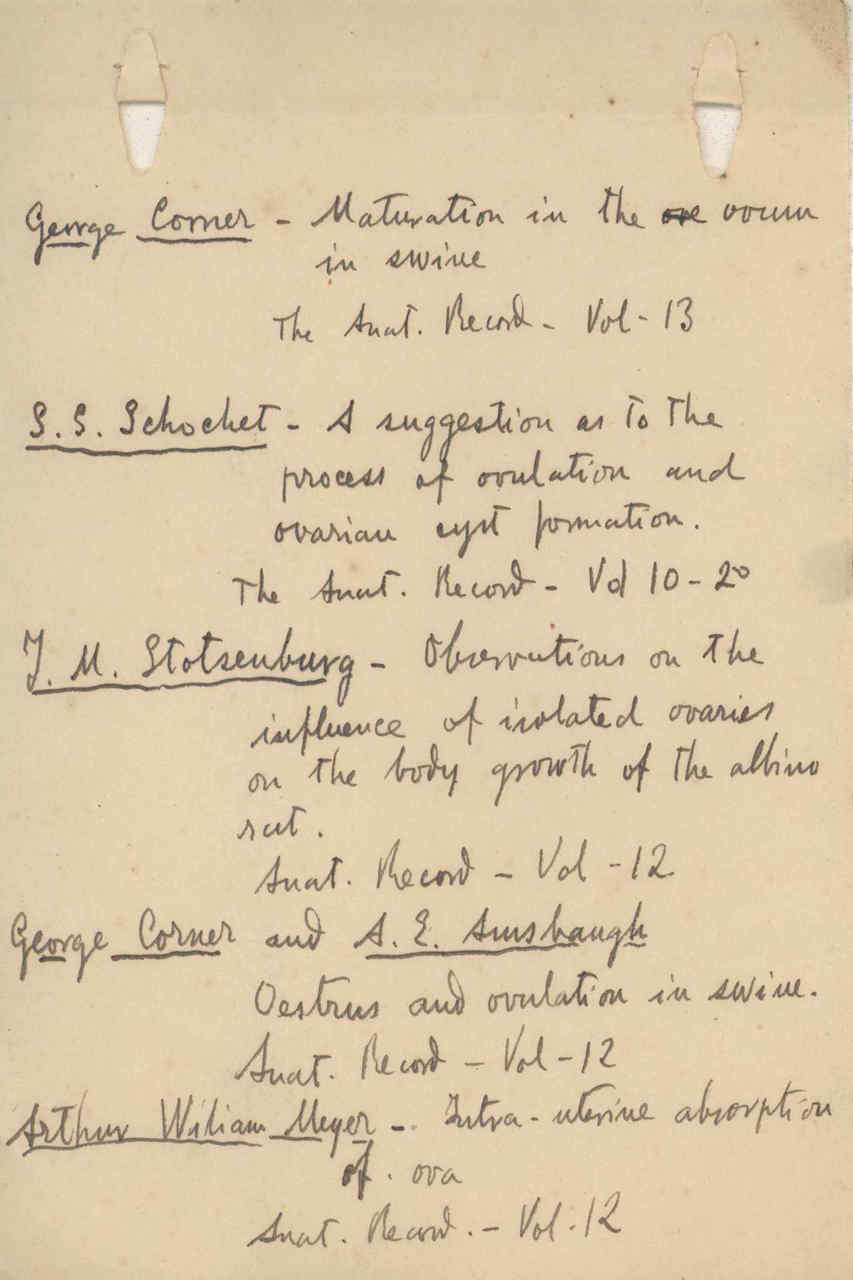 George Corner - Maturation in the ove ovum
in swine
The Anat. Record - Vol - 13
S. S. Schochet - A suggestion as to the
process of ovulation and
ovarian cyst formation.
The Anat. Record - Vol 10 - 20
J. M. Stotsenburg - Observations on the
influence of isolated ovaries
on the body growth of the albino
rat.
Anat. Record - Vol - 12
George Corner and A. E. Amsbaugh
Oestrus and ovulation in swine.
Anat. Record - Vol - 12
Arthur Wiliam Meyer - Intra-uterine absorption
of . ova
Anat. Record. - Vol. 12